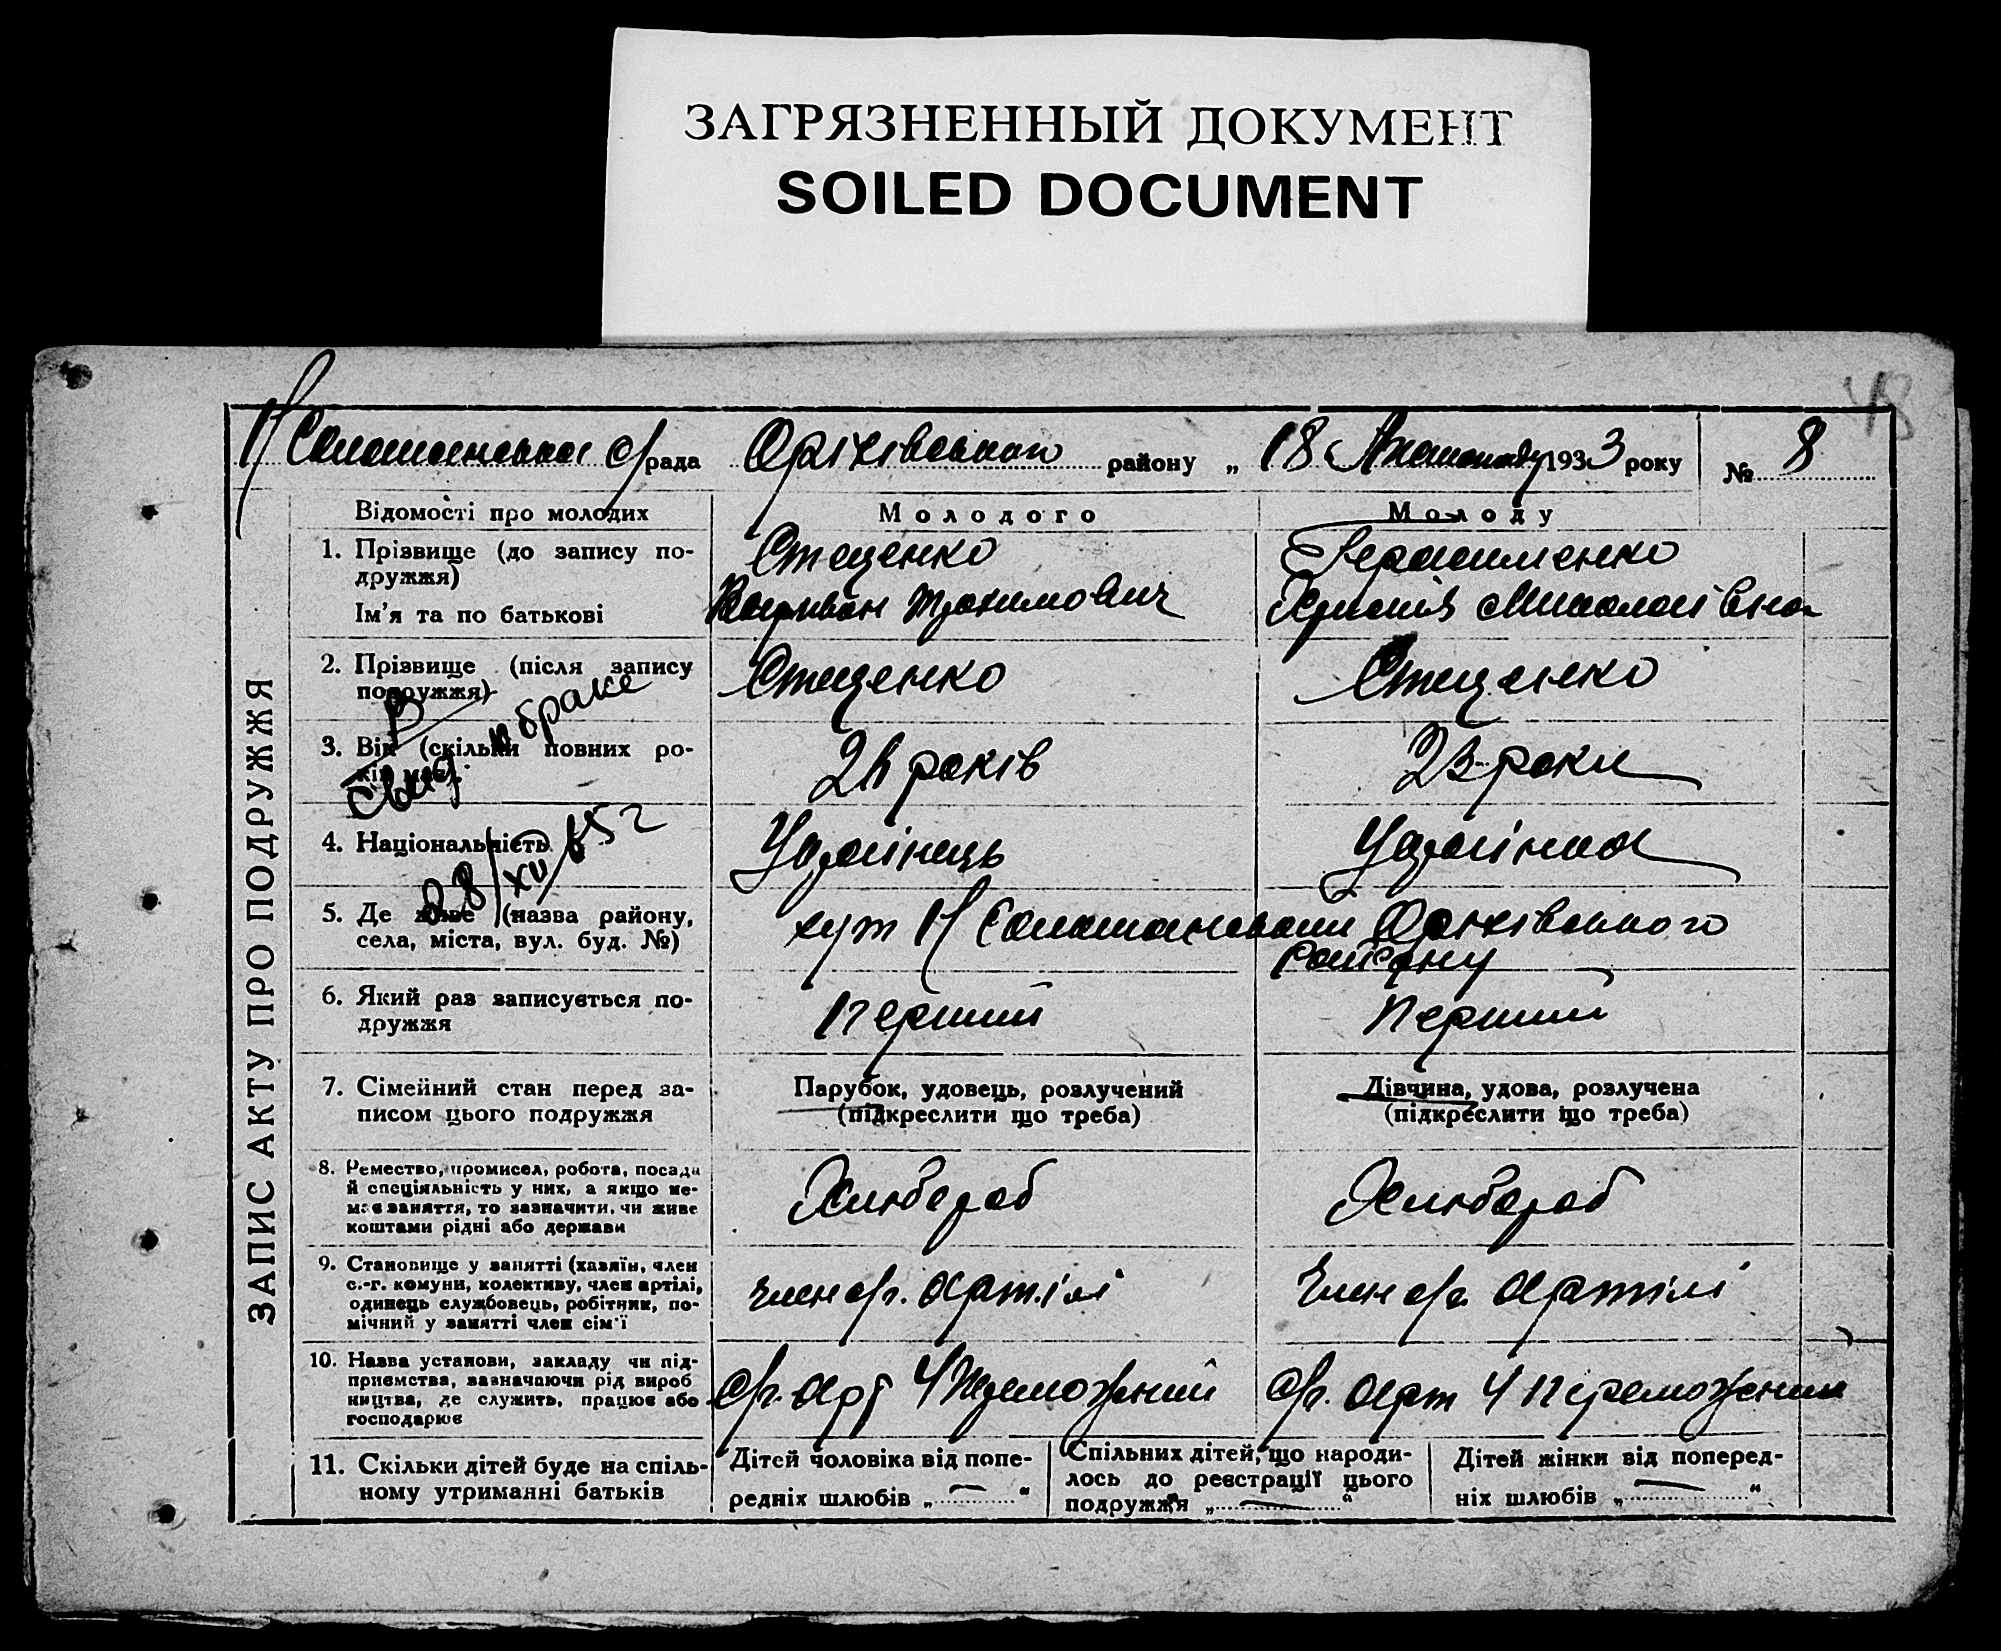 ЗАГРЯЗНЕННЫЙ ДОКУМЕНТ
SOILED DOCUMENT
48
с/рада Оріхівського району „ 18 Листопаду 1933 року № 8
ЗАПИС АКТУ ПРО ПОДРУЖЖЯ
Відомості про молодих Молодого Молоду
1. Прізвище (до запису по-
дружжя) Стеценко Герасименко
Ім'я та по батькові Трохимович Миколаївна
2. Прізвище (після запису
подружжя) Стеценко Стеценко
В
свид о браке
3. Вік (скільки повних ро-
ків має). років 23 роки
28/XII 65 г
4. Національність Українець Українка
5. Де живе (назва району,
села, міста, вул. буд. №) хут Оріхівського
району
6. Який раз записується по-
дружжя Перший Перший
7. Сімейний стан перед за-
писом цього подружжя
Парубок, удовець, розлучений
(підкреслити що треба)
Дівчина, удова, розлучена
(підкреслити що треба)
8. Ремество, промисел, робота, посада
й спеціяльність у них, а якщо не-
має заняття, то зазначити, чи живе
коштами рідні або держави
Хлюбороб Хлюбороб
9. Становище у занятті (хазяїн, член
с.-г. комуни, колективу, член артілі,
одинець службовець, робітник, по-
мічний у занятті член сім'ї
член с/г. артілі член с/г. артілі
10. Назва установи, закладу чи під-
приємства, зазначаючи рід вироб
ництва, де служить, працює або
господарює
с/г. арт Ч Переможений с/г. арт Ч Переможений
11. Скільки дітей буде на спіль-
ному утриманні батьків
Дітей чоловіка від попе-
редніх шлюбів „ — “
Спільних дітей, що народи-
лось до реєстрації цього
подружжя „ — “
Дітей жінки від поперед-
ніх шлюбів „ — “